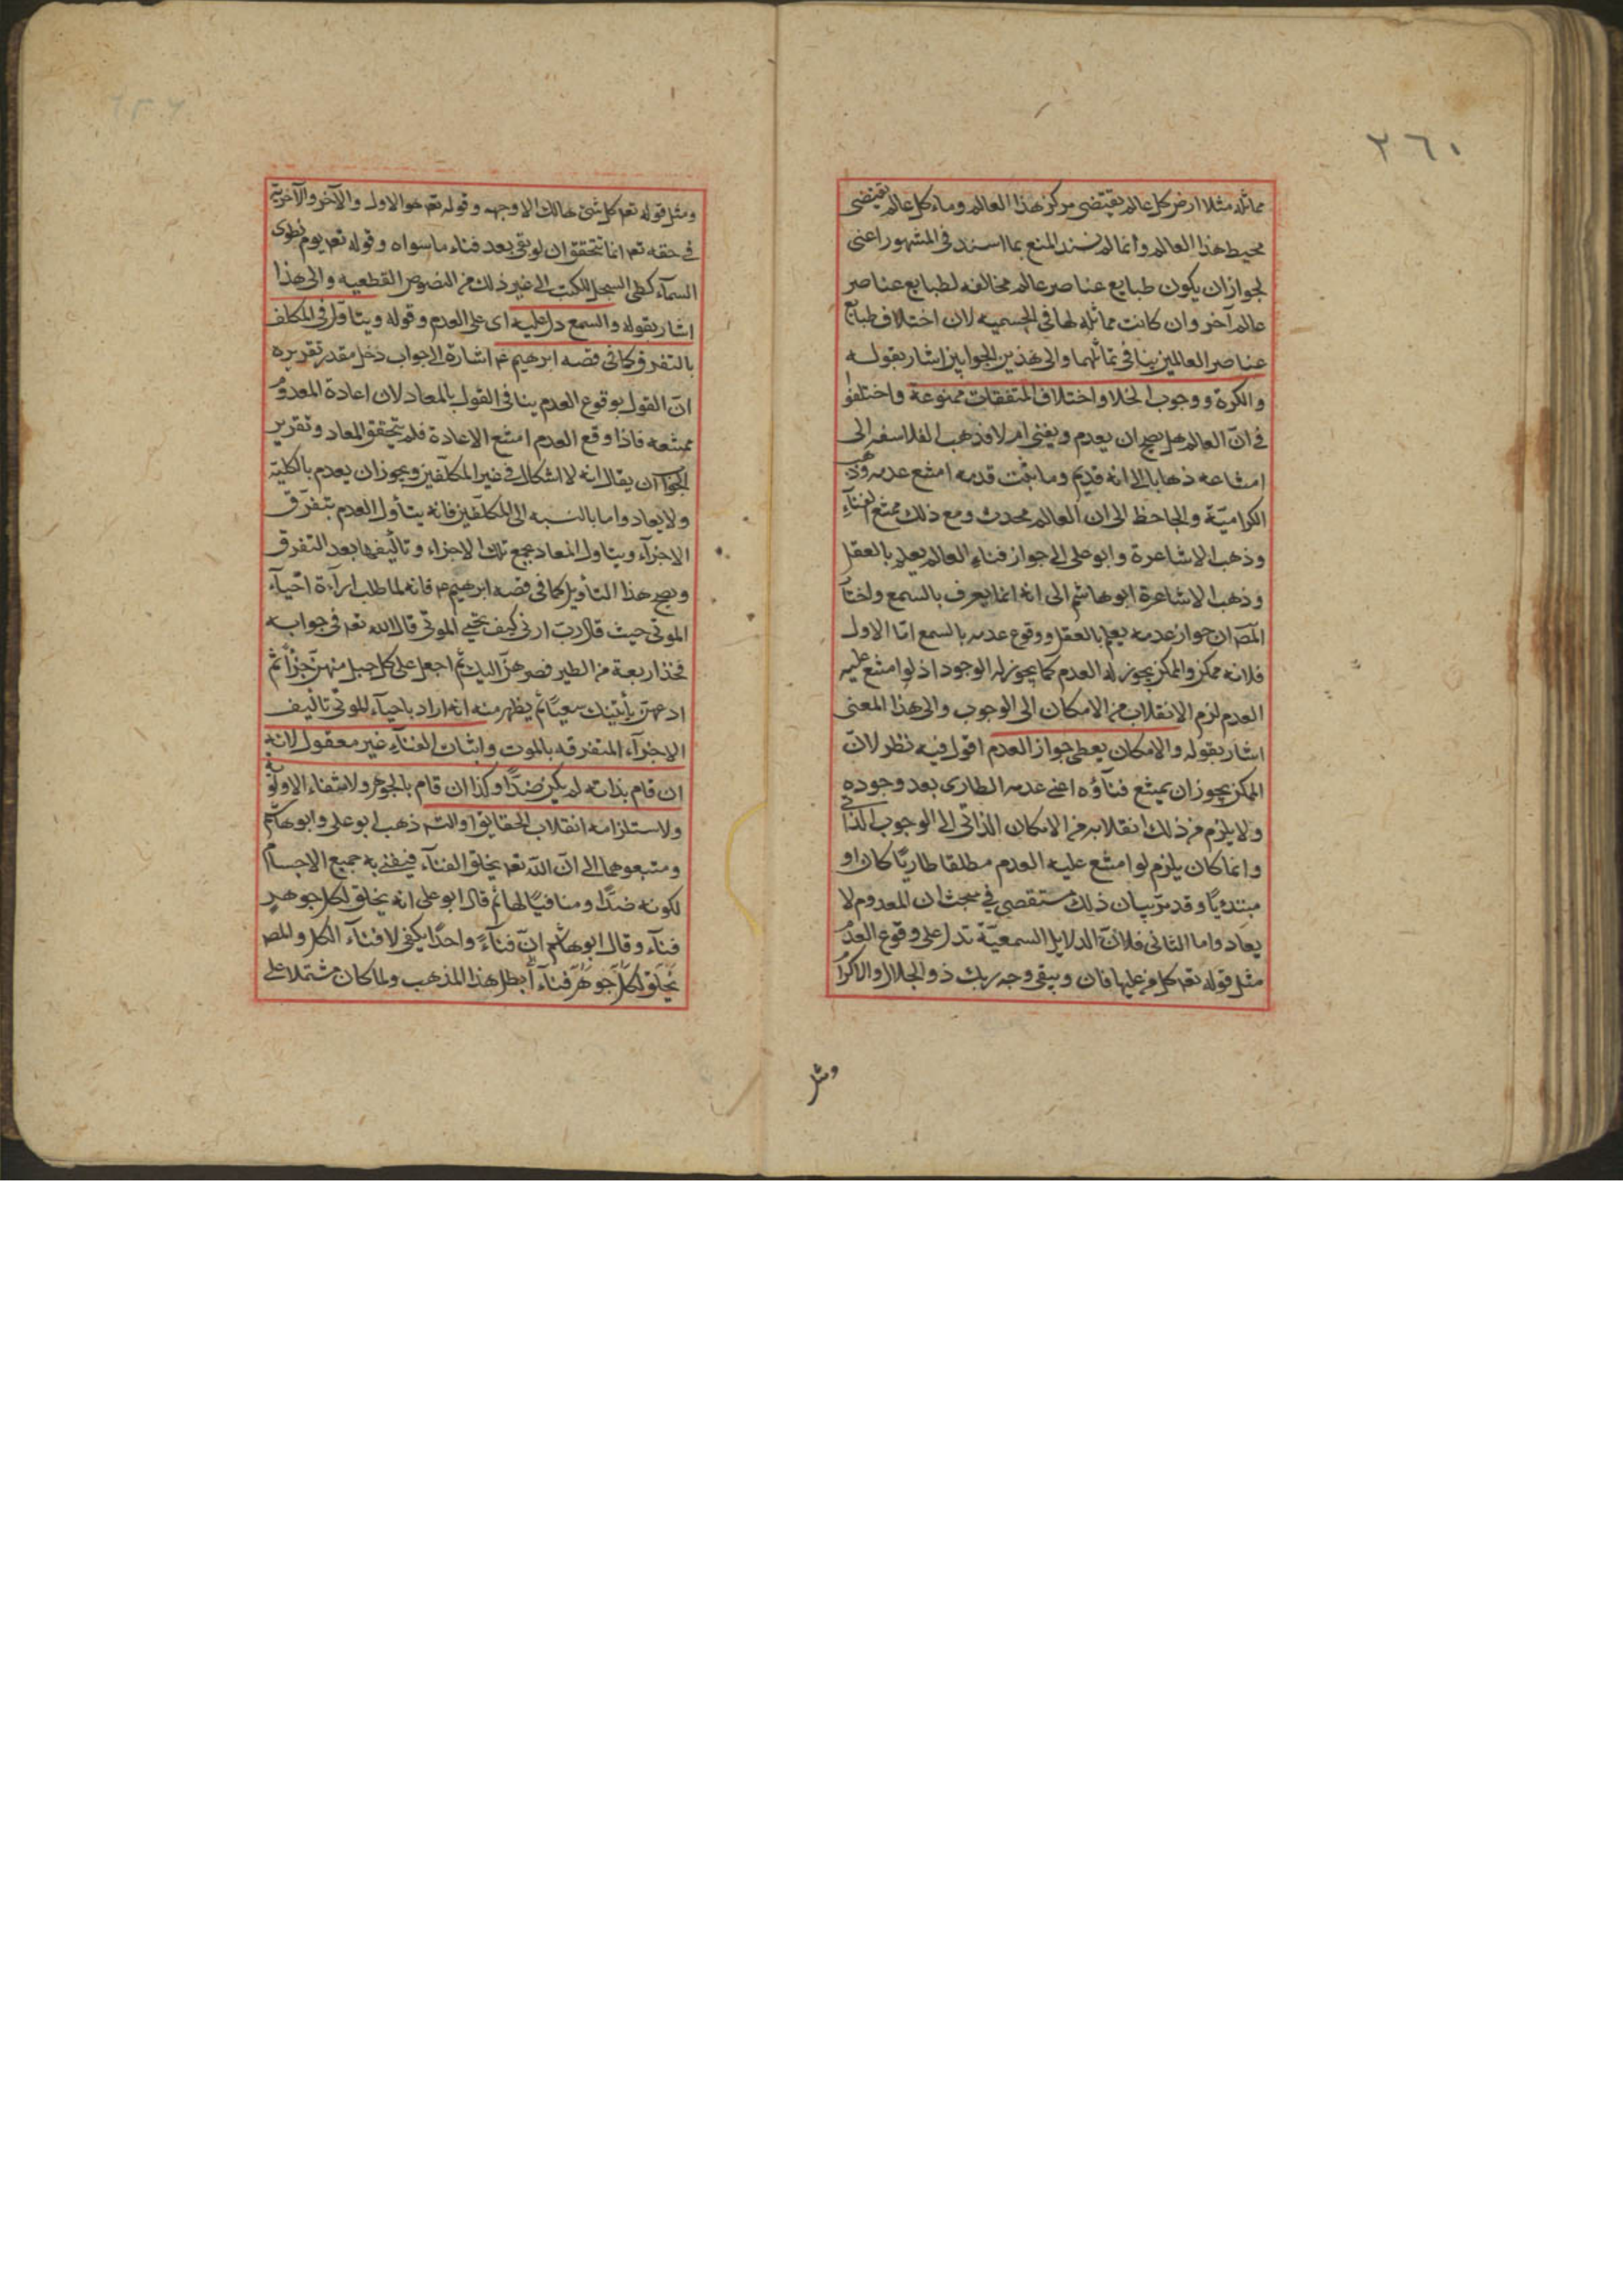 ٢٦٠
مماثله مثلا ارض كل عالم يقتضى مركز هذا العالم وماء كل عالم يقتضى
محيط هذا العالم وانما لم نسند المنع بما اسند فى المشهور اعنى
لجواز ان يكون طبايع عناصر عالم مخالفه لطبايع عناصر
عالم آخر وان كانت مماثله لها فى الجسميه لان اختلاف طبايع
عناصر العالمين ينافى تماثلهما والى هذين الجوابين اشار بقوله
والكرة ووجوب الخلا واختلاف المتفقات ممنوعة واختلفوا
فى انّ العالم هل يصح ان يعدم ويفنى ام لا فذهب الفلاسفه الى
امتناعه ذهابا الى انه قديم وما ثبت قدمه امتنع عدمه وذهب
الكراميّة والجاحظ الى ان العالم محدث ومع ذلك ممتنع الفناء
وذهب الاشاعرة وابو على الى جواز فناء العالم يعلم بالعقل
وذهب الاشاعرة ابو هاشم الى انه انما يعرف بالسمع واختار
المصَ ان جواز عدمه يعلم بالعقل ووقوع عدمه بالسمع امّا الاول
فلانه ممكن والممكن يجوز له العدم كما يجوز له الوجود اذ لو امتنع عليه
العدم لزم الانقلاب من الامكان الى الوجوب والى هذا المعنى
اشار بقوله والامكان يعطى جواز العدم اقول فيه نظر لانّ
الممكن يجوز ان يمتنع فنآؤه اعنى عدمه الطارى بعد وجوده
ولا يلزم من ذلك انقلابه من الامكان الذاتى الى الوجوب الذاتى
وانما كان يلزم لو امتنع عليه العدم مطلقا طاريًا كان او
مبتدءيًا وقد مرّ بيان ذلك مستقصى فى مبحث ان المعدوم لا
يعاد واما الثانى فلانّ الدلايل السمعيّة تدل على وقوع العدم
مثل قوله تعـ كل من عليها فان ويبقى وجه ربك ذو الجلال والاكرام
ومثل
ومثل قوله تعـ كل شئ هالك الا وجهه وقوله تعـ هو الاول والآخر والآخريّة
فى حقه تعـ انما تتحقق ان لو بقى بعد فناء ما سواه وقوله تعـ يوم نطوى
السمآء كطى السجل للكتب الى غير ذلك من النصوص القطعيه والى هذا
اشار بقوله والسمع دل عليه اى على العدم وقوله ويتاوّل فى المكلف
بالتفرق كما فى قصه ابرهيم عم اشارة الى جواب دخل مقدر تقريره
انّ القول بوقوع العدم ينافى القول بالمعاد لان اعادة المعدوم
ممتنعه فاذا وقع العدم امتنع الاعادة فلم يتحقق المعاد وتقرير
الجواب ان يقال انه لا اشكال فى غير المكلفين ويجوز ان يعدم بالكليّه
ولا يعاد واما بالنسبه الى المكلّفين فانه يتأول العدم بتفرّق
الاجزآء ويتاول المعاد بجمع تلك الاجزاء وتأليفها بعد التفرق
ويصح هذا التأويل كما فى قصه ابرهيم عم فانه لما طلب ارآءة احيآء
الموتى حيث قال ربّ ارنى كيف تحيى الموتى قال الله تعـ فى جوابه
فخذ اربعة من الطير فصرهنّ اليك ثم اجعل على كل جبل منهنّ جزأ ثم
ادعهنّ يأتينك سعيًا ثم يظهر منه انه اراد باحيآء الموتى تاليف
الاجزآء المتفرقه بالموت واثبات الفنآء غير معقول لانه
ان قام بذاته لم يكن ضدًّا وكذا ان قام بالجوهر ولانتفاء الاولويّة
ولاستلزامه انقلاب الحقايق او التسـ ذهب ابو على وابو هاشم
ومتبعوهما الى انّ الله تعـ يخلق الفنآء فيفنى به جميع الاجسام
لكونه ضدًّا ومنافيًا لها ثم قال ابو على انه يخلق لكل جوهر
فنآء وقال ابو هاشم انّ فنآءً واحدًا يكفى لافنآء الكل والمصـ
يخلق لكل جوهر فنآء ابطل هذا المذهب ولما كان مشتملا على